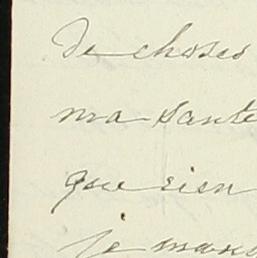 de choses
ma santé
que rien
je